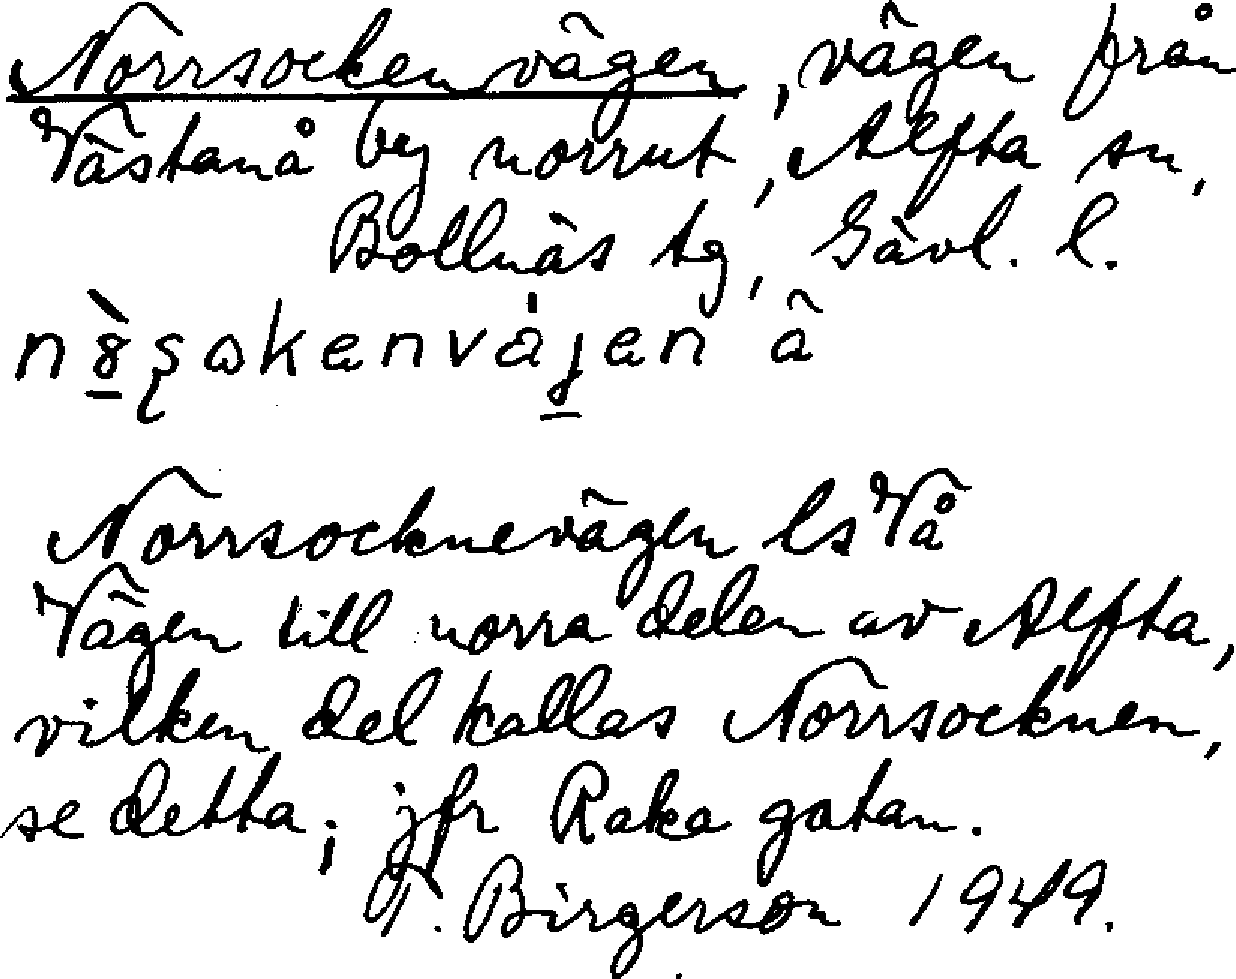 Norrsockenvägen, vägen från
Västanå by norrut, Alfta sn,
Bollnäs tg, Gävl. l.
Norrsocknevägen ls Vå
Vägen till norra delen av Alfta,
vilken del kallas Norrsocknen,
se detta; jfr Raka gatan.
T. Birgerson 1949.